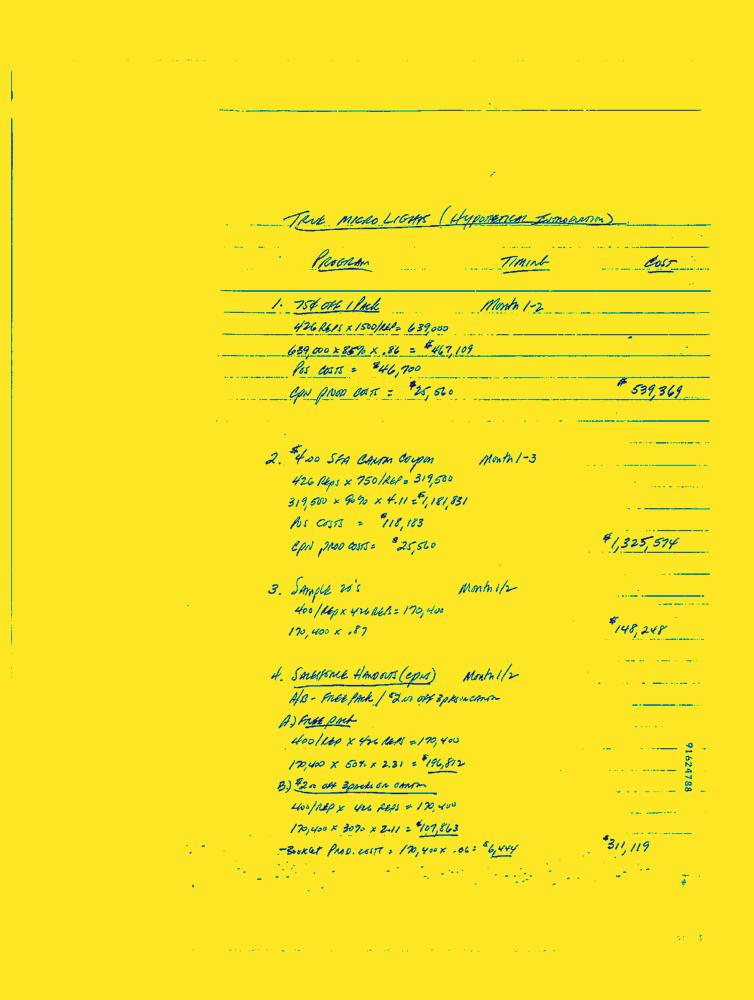 TRUE MICRO LIGHTS (HYPOTHETICAL INTRODUCTION)
PROGRAM TIMING COST
1. 75¢ OFF 1 PACK Month 1-2
426 REPS x 1500/REP = 639,000
639,000 x 85% x .86 = $467,109
POS COSTS = $46,700
CPN PROD COSTS = $25,560 $539,369
2. $4.00 SFA CARTON COUPON Month 1-3
426 Reps x 750/REP = 319,500
319,500 x 90% x 4.11 = $1,181,831
POS COSTS = $118,183
CPN PROD COSTS = $25,560 $1,325,574
3. SAMPLE 20's Month 1/2
400/Rep x 426 REPS = 170,400
170,400 x .87 $148,248
4. SALESFORCE HANDOUTS (cpns) Month 1/2
A/B - FREE PACK / $2.00 OFF 3 PKS OR CARTON
A) FREE PACK
400/REP x 426 REPS = 170,400
170,400 x 50% x 2.31 = $196,812
B.) $2.00 OFF 3 PACKS OR CARTON
400/REP x 426 REPS = 170,400
170,400 x 30% x 2.11 = $107,863
- BOOKLET PROD. COSTS = 170,400 x .06 = $6,444 $311,119
91624788